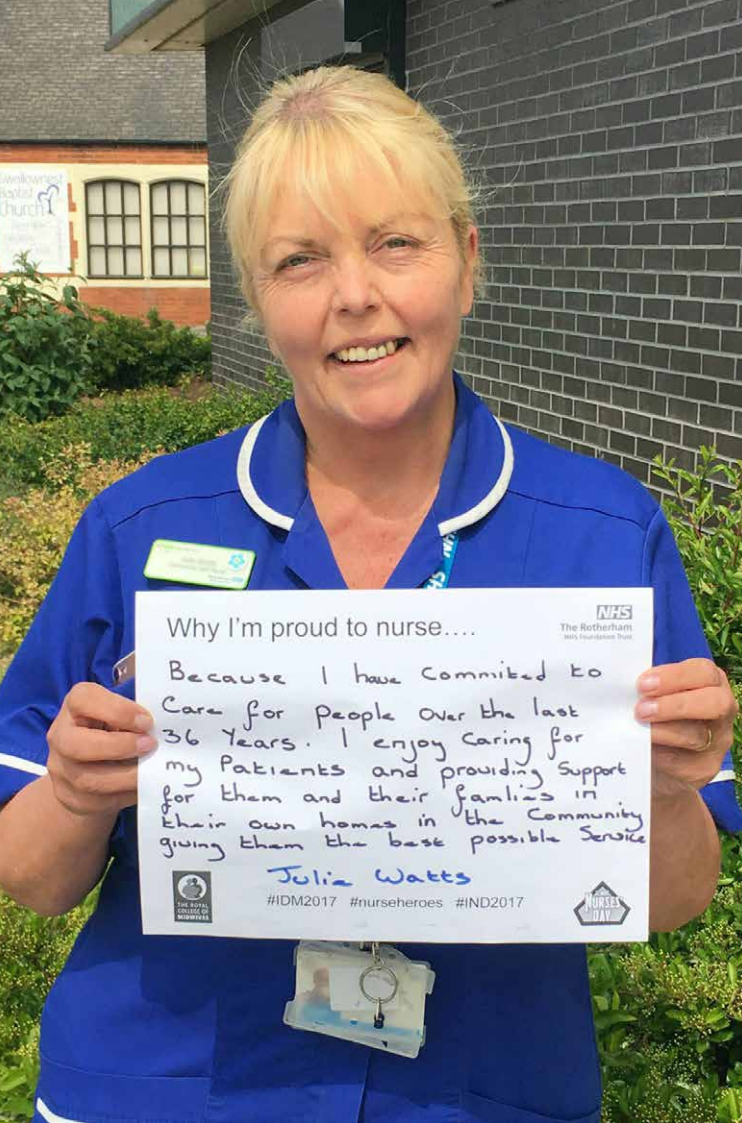 Swallownest
Baptist
Church
NHS
Why I'm proud to nurse....
NHS
The Rotherham
NHS Foundation Trust
Because I have commited to
Care for people over the last
36 Years. I enjoy caring for
my Patients and providing Support
for them and their famlies in
their own homes in the Community
giving them the best possible Service
Julie Watts
THE ROYAL
COLLEGE OF
MIDWIVES
#IDM2017 #nurseheroes #IND2017
NURSES
DAY